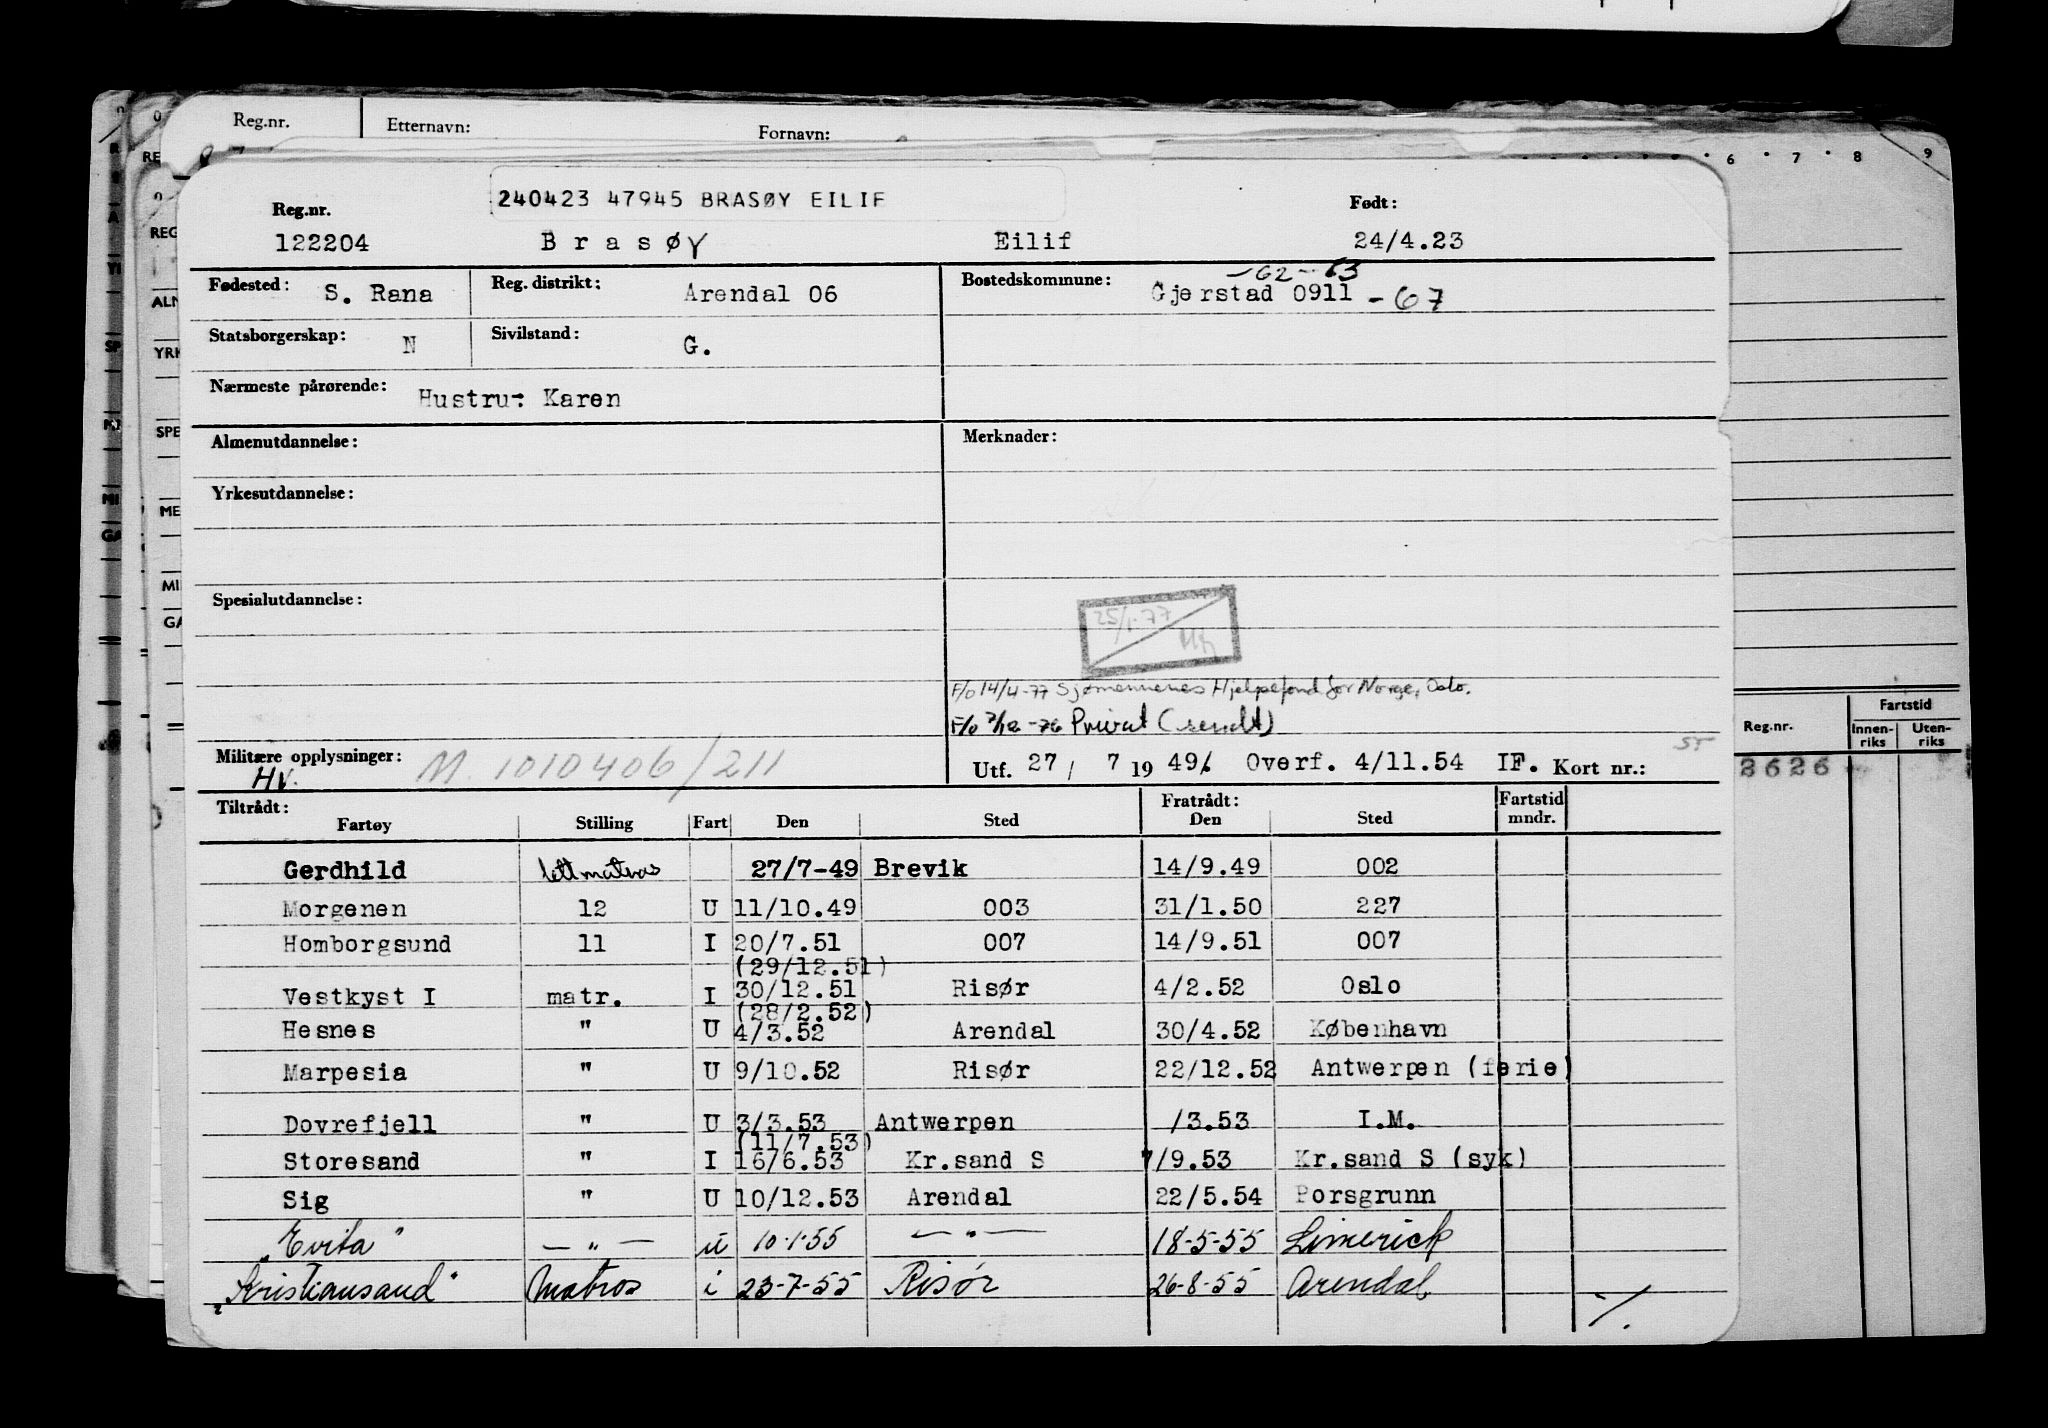 Reg.nr. Etternavn: Fornavn:
6 7 8 9
240423 47945 BRASØY EILIF
Reg.nr. Født:
122204 Brasøy Eilif 24/4.23
-62-63
Fødested: S. Rana Reg. distrikt: Arendal 06 Bostedskommune: Gjerstad 0911 -67
Statsborgerskap: N Sivilstand: G.
Nærmeste pårørende: Hustru-: Karen
Almenutdannelse: Merknader:
Yrkesutdannelse:
Spesialutdannelse:
25/1-77
F/o 14/4-77 Sjømennenes Hjelpefond for Norge, Oslo.
F/o 7/12-76 Privat (sendt)
Militære opplysninger: HV. M. 1010406/211
Utf. 27/ 7 1949/. Overf. 4/11.54 IF. Kort nr.:
Tiltrådt: Fratrådt: Fartstid
Fartøy Stilling Fart Den Sted Den Sted mndr.
Gerdhild lettmatros 27/7-49 Brevik 14/9.49 002
Morgenen 12 U 11/10.49 003 31/1.50 227
Homborgsund 11 I 20/7.51 007 14/9.51 007
(29/12.51)
Vestkyst I matr. I 30/12.51 Risør 4/2.52 Oslo
(28/2.52)
Hesnes " U 4/3.52 Arendal 30/4.52 København
Marpesia " U 9/10.52 Risør 22/12.52 Antwerpen (ferie)
Dovrefjell " U 3/3.53 Antwerpen /3.53 I.M.
(11/7.53)
Storesand " I 16/6.53 Kr.sand S 7/9.53 Kr.sand S (syk)
Sig " U 10/12.53 Arendal 22/5.54 Porsgrunn
"Evita" — " — u 10-1-55 — " — 18-5-55 Limerick
"Kristiansand" Matros i 23-7-55 Risör 26-8-55 Arendal
Reg.nr. Fartstid
Innenriks Utenriks
2626